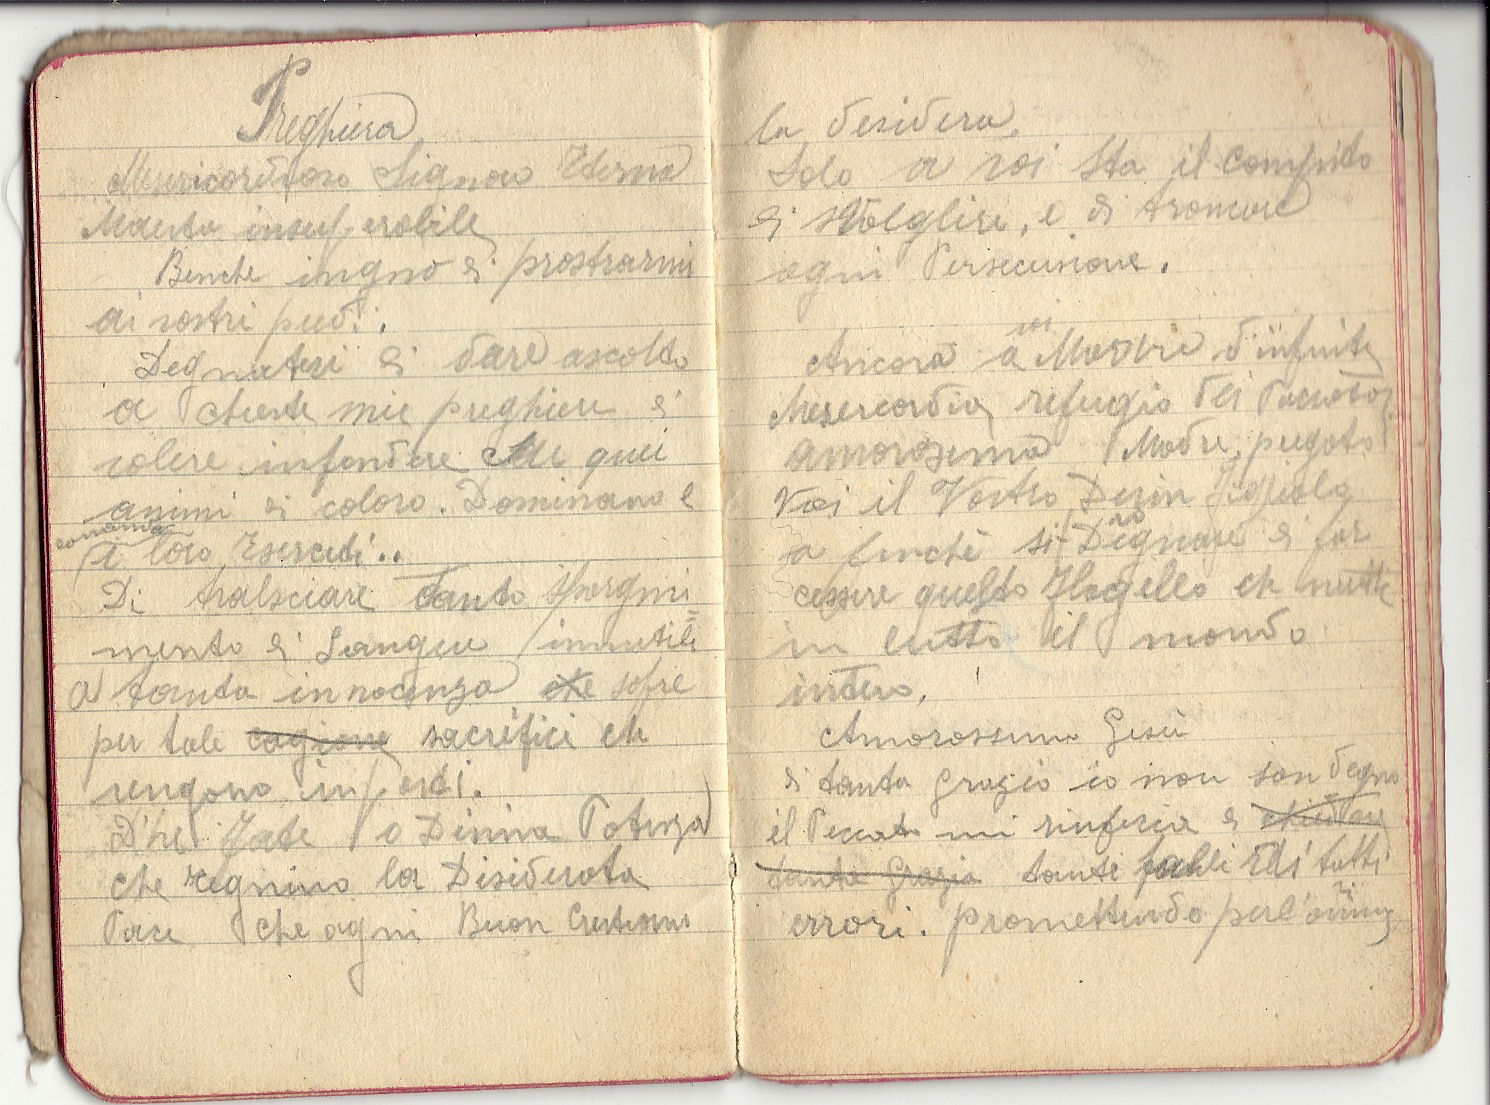 Preghiera
Misericordioso Signore Eterna
Maesta insuperabile
Benche ingno di prostrarmi
ai vostri piedi.
Degnatevi di dare ascolto
a queste mie preghiere di
volere infondere quei
animi di coloro. Dominano e
comanda
i loro Eserciti..
Di tralsciare tanto sporgmi=
mento di Sangue innutili
a tanta innocenza che sofre
per tale cagione sacrifici ch
vengono imposti.
D'he Fate o Divina Potenza
che regnino la Disiderata
Pace che ogni Buon Crestiano
la desidera
Solo a voi Sta il compito
di stolglire, e di troncare
ogni Persecusione.
voi
Ancora a Madre d'infinite
Misercordia refugio dei Peccatori
amorosima Madre, pregato
Voi il Vostro Divin Figliolo
a finchè si Degnare di far
cessare quelsto Flagello ch mette
in lutto il mondo
intero.
Amorossimo Gesù
di tanta grazia io non son degno
il Peccato mi rinfacia di chiedere
tanta grazia tanti falli e di tutti
errori. promettendo perl'avinire